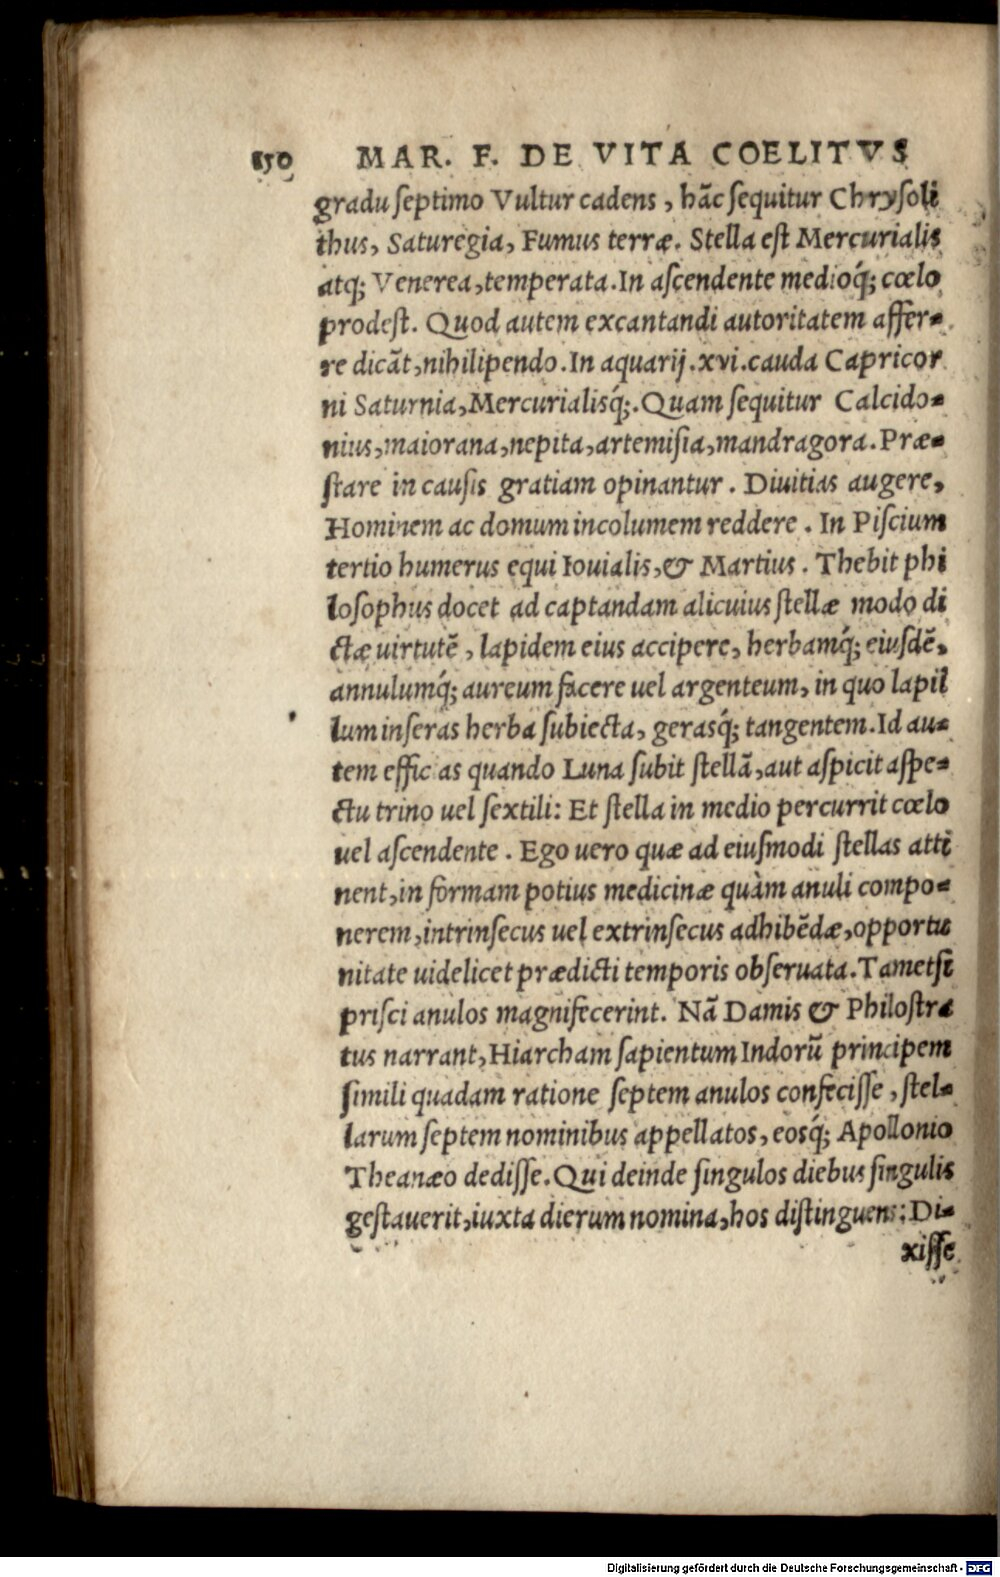 150 MAR. F. DE VITA COELITVS
gradu ſeptimo Vultur cadens, hãc ſequitur Chryſoli
thus, Saturegia, Fumus terræ. Stella eſt Mercurialis
atq; Venerea, temperata. In aſcendente medioq́; cœlo
prodeſt. Quod autem excantandi autoritatem affer-
re dicãt, nihilipendo. In aquarij. xvi. cauda Capricor
ni Saturnia, Mercurialisq́;. Quam ſequitur Calcido-
nius, maiorana, nepita, artemiſia, mandragora. Præ-
ſtare in cauſis gratiam opinantur. Diuitias augere,
Hominem ac domum incolumem reddere. In Piſcium
tertio humerus equi Iouialis, & Martius. Thebit phi
loſophus docet ad captandam alicuius ſtellæ modo di
ctæ uirtutẽ, lapidem eius accipere, herbamq́; eiuſdẽ,
annulumq́; aureum facere uel argenteum, in quo lapil
lum inſeras herba ſubiecta, gerasq́; tangentem. Id au-
tem efficias quando Luna ſubit ſtellã, aut aſpicit aſpe-
ctu trino uel ſextili: Et ſtella in medio percurrit cœlo
uel aſcendente. Ego uero quæ ad eiuſmodi ſtellas atti
nent, in formam potius medicinæ quàm anuli compo-
nerem, intrinſecus uel extrinſecus adhibẽdæ, opportu
nitate uidelicet prædicti temporis obſeruata. Tametſi
priſci anulos magnifecerint. Nã Damis & Philoſtra
tus narrant, Hiarcham ſapientum Indorũ principem
ſimili quadam ratione ſeptem anulos confeciſſe, ſtel-
larum ſeptem nominibus appellatos, eosq́; Apollonio
Theanæo dediſſe. Qui deinde ſingulos diebus ſingulis
geſtauerit, iuxta dierum nomina, hos diſtinguens: Di-
xiſſe
Digitalisierung gefördert durch die Deutsche Forschungsgemeinschaft - DFG